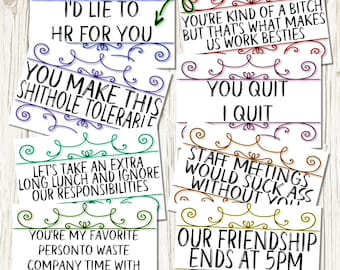 I'D LIE TO
HR FOR YOU
YOU'RE KIND OF A BITCH
BUT THATS WHAT MAKES
US WORK BESTIES
YOU MAKE THIS
SHITHOLE TOLERABLE
YOU QUIT
I QUIT
LET'S TAKE AND EXTRA
LONG LUNCH AND IGNORE
OUR RESPONSIBILITIES
STAFF MEETINGS
WOULD SUCK ASS
WITHOUT YOU
YOU'RE MY FAVORITE
PERSONTO WASTE
COMPANY TIME WITH
OUR FRIENDSHIP
ENDS AT 5PM